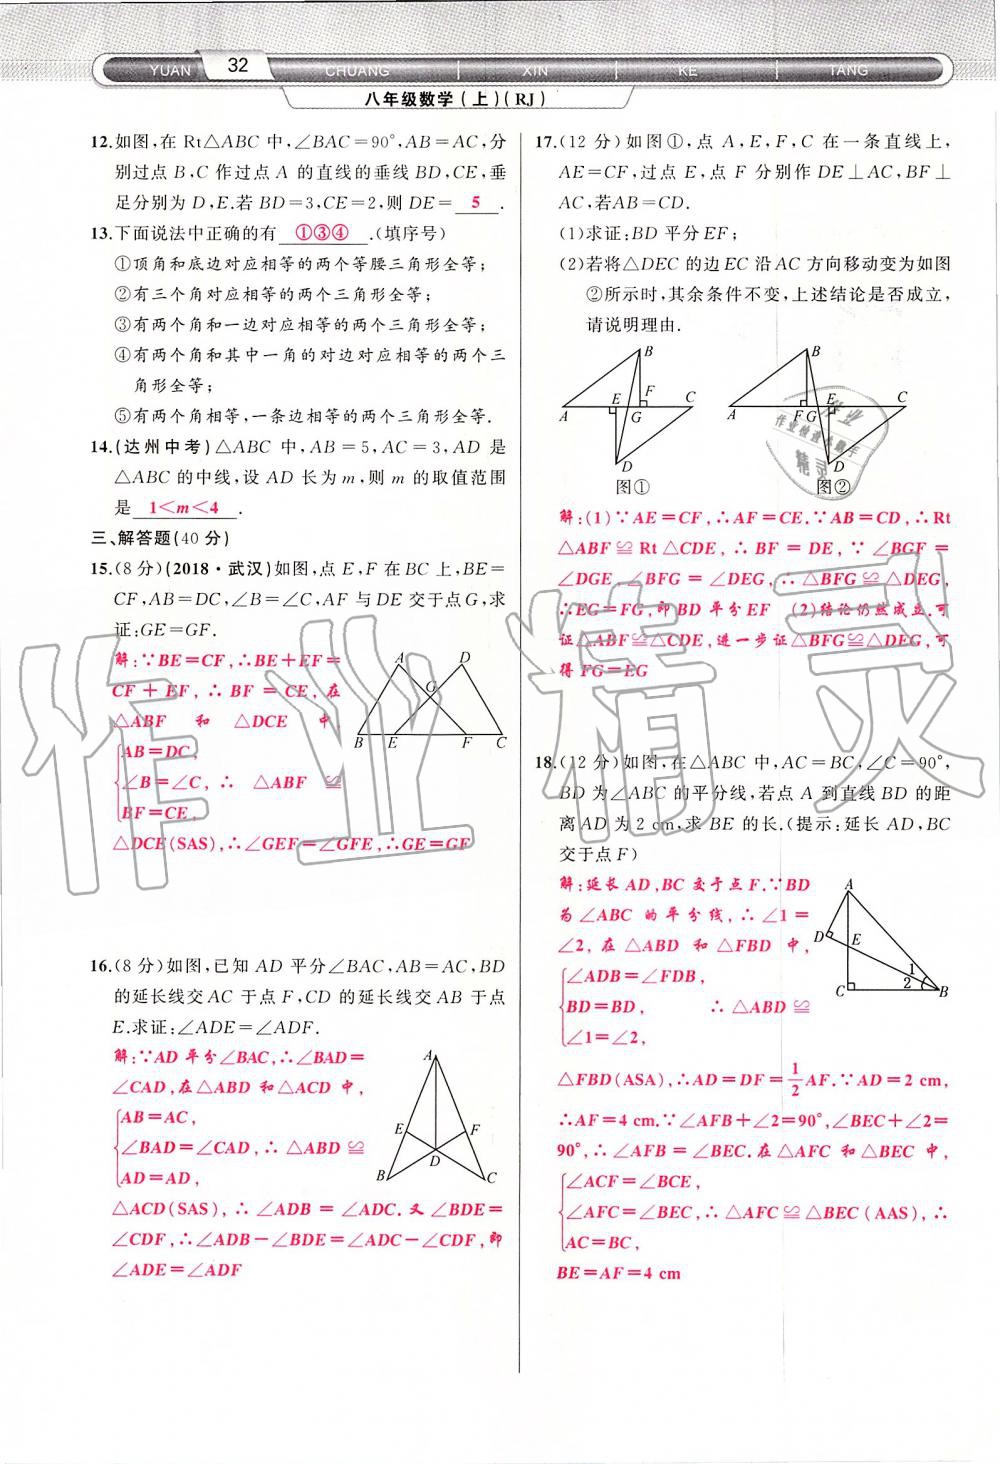 YUAN 32 CHUANG XIN KE TANG
八年级数学(上)(RJ)
12.如图,在 Rt△ABC 中,∠BAC=90°,AB=AC,分
别过点 B,C 作过点 A 的直线的垂线 BD,CE,垂
足分别为 D,E.若 BD=3,CE=2,则 DE= 5 .
13.下面说法中正确的有 ①③④ .(填序号)
①顶角和底边对应相等的两个等腰三角形全等;
②有三个角对应相等的两个三角形全等;
③有两个角和一边对应相等的两个三角形全等;
④有两个角和其中一角的对边对应相等的两个三
角形全等;
⑤有两个角相等,一条边相等的两个三角形全等.
14.(达州中考)△ABC 中,AB=5,AC=3,AD 是
△ABC 的中线,设 AD 长为 m,则 m 的取值范围
是 1<m<4 .
三、解答题(40 分)
15.(8 分)(2018·武汉)如图,点 E,F 在 BC 上,BE=
CF,AB=DC,∠B=∠C,AF 与 DE 交于点 G,求
证:GE=GF.
解:∵BE=CF,∴BE+EF=
CF+EF,∴BF=CE,在
△ABF 和 △DCE 中,
AB=DC,
∠B=∠C,∴ △ABF ≌
BF=CE,
△DCE(SAS),∴∠GEF=∠GFE,∴GE=GF
A D G B E F C
16.(8 分)如图,已知 AD 平分∠BAC,AB=AC,BD
的延长线交 AC 于点 F,CD 的延长线交 AB 于点
E.求证:∠ADE=∠ADF.
解:∵AD 平分∠BAC,∴∠BAD=
∠CAD,在△ABD 和△ACD 中,
AB=AC,
∠BAD=∠CAD,∴△ABD≌
AD=AD,
△ACD(SAS),∴∠ADB=∠ADC.又∠BDE=
∠CDF,∴∠ADB-∠BDE=∠ADC-∠CDF,即
∠ADE=∠ADF
A E F D B C
17.(12 分)如图①,点 A,E,F,C 在一条直线上,
AE=CF,过点 E,点 F 分别作 DE⊥AC,BF⊥
AC,若AB=CD.
(1)求证:BD 平分EF;
(2)若将△DEC 的边 EC 沿 AC 方向移动变为如图
②所示时,其余条件不变,上述结论是否成立,
请说明理由.
B F E A G C D
图①
B E C A F G D
图②
解:(1)∵AE=CF,∴AF=CE.∵AB=CD,∴Rt
△ABF≌Rt△CDE,∴BF=DE,∵∠BGF=
∠DGE,∠BFG=∠DEG,∴△BFG≌△DEG,
∴EG=FG,即 BD 平分 EF (2)结论仍然成立.可
证△ABF≌△CDE,进一步证△BFG≌△DEG,可
得 FG=EG
18.(12 分)如图,在△ABC 中,AC=BC,∠C=90°,
BD 为∠ABC 的平分线,若点 A 到直线 BD 的距
离 AD 为 2 cm,求 BE 的长.(提示:延长 AD,BC
交于点 F)
解:延长 AD,BC 交于点 F.∵BD
为∠ABC 的平分线,∴∠1=
∠2,在△ABD 和△FBD 中,
∠ADB=∠FDB,
BD=BD, ∴△ABD≌
∠1=∠2,
△FBD(ASA),∴AD=DF=1/2 AF.∵AD=2 cm,
∴AF=4 cm.∵∠AFB+∠2=90°,∠BEC+∠2=
90°,∴∠AFB=∠BEC.在△AFC 和△BEC 中,
∠ACF=∠BCE,
∠AFC=∠BEC,∴△AFC≌△BEC(AAS),∴
AC=BC,
BE=AF=4 cm
A D E 1 2 C B
作业精灵
作业检查小助手
精灵